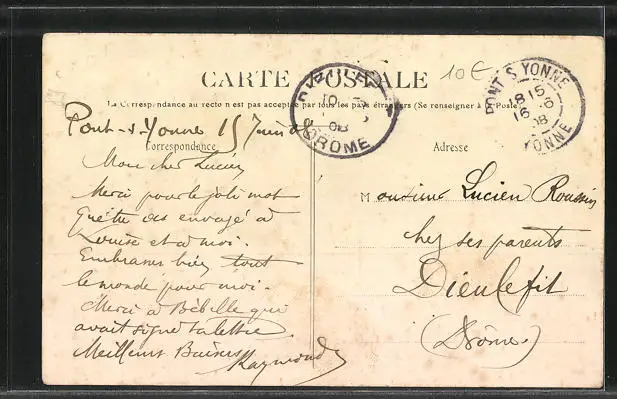 CARTE POSTALE
10 €
La Correspondance au recto n'est pas acceptée par tous les pays étrangers (Se renseigner à la Poste)
PONT S YONNE
1815
16 6
08
YONNE
DIEULEFIT
08
DROME
Pont-s-Yonne 15 Juin 08
Correspondance
Mon cher Lucien
Merci pour le joli mot
que tu as envoyé à
Louise et à moi.
Embrasses bien tout
le monde pour moi.
Merci à Bébelle qui
avait signé ta lettre.
Meilleurs Baisers
Raymond
Adresse
Monsieur Lucien Roussin
chez ses parents
Dieulefit
(Drôme)